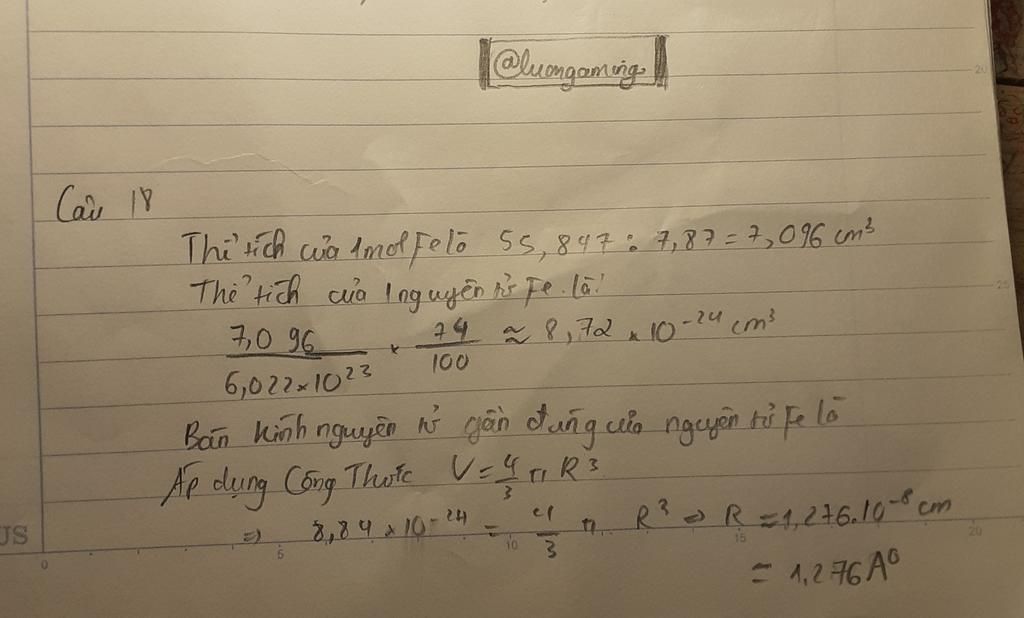 @luongaming
Câu 18
Thể tích của 1mol Fe là 55,847 : 7,87 = 7,096 cm³
Thể tích của 1 nguyên tử Fe là:
7,096 / 6,022×10²³ × 74/100 ≈ 8,72 × 10⁻²⁴ cm³
Bán kính nguyên tử gần đúng của nguyên tử Fe là
Áp dụng Công Thức V = 4/3 π R³
=> 8,84 × 10⁻²⁴ = 4/3 π R³ => R = 1,276.10⁻⁸ cm
= 1,276 A⁰
JS
0 5 10 15 20
20
25